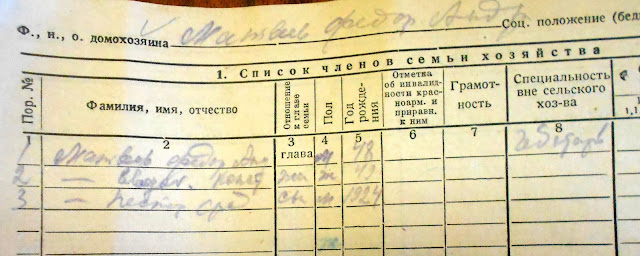 Ф., и., о. домохозяина Матвеев Федор Андр Соц. положение (бед
1. Список членов семьи хозяйства
Пор. № Фамилия, имя, отчество Отношение к главе семьи Пол Год рождения Отметка об инвалидности красноарм. и приравн. к ним Грамотность Специальность вне сельского хоз-ва
1 2 3 4 5 6 7 8 1,1
1 Матвеев Федор Анд глава м 48
2 — ж 49
3 — Фед сы м 1924